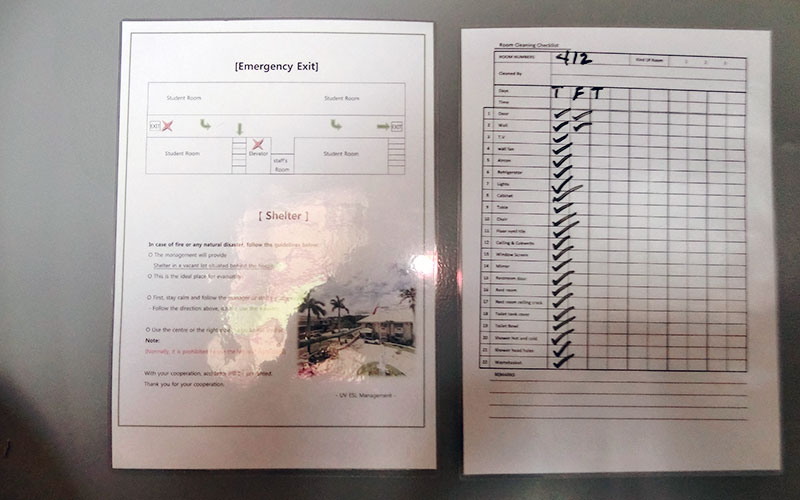 [Emergency Exit]
Student Room
Student Room
EXIT
EXIT
Student Room
Elevator
staff's
Room
Student Room
[ Shelter ]
In case of fire or any natural disaster, follow the guidelines below:
O The management will provide
Shelter in a vacant lot situated behind the
O This is the ideal place for
O First, stay calm and follow the manager
- Follow the direction above,
O Use the centre or the right
Note:
(Normally, it is prohibited
With your cooperation, accidents
Thank you for your cooperation.
- LN ESL Management -
Room Cleaning Checklist
ROOM NUMBERS
412
Kind Of Room
1
2
3
Cleaned By
Date
T F T
Time
1 Door
2 Wall
3 T.V
4 Wall fan
5 Aircon
6 Refrigerator
7 Lights
8 Cabinet
9 Table
10 Chair
11 Floor vynil tile
12 Ceiling &
13 Window Screen
14 Mirror
15 Restroom door
16 Rest room
17 Rest room ceiling crack
18 Toilet tank cover
19 Toilet Bowl
20 Shower Hot and cold
21 Shower head holder
22 Washstand
REMARKS